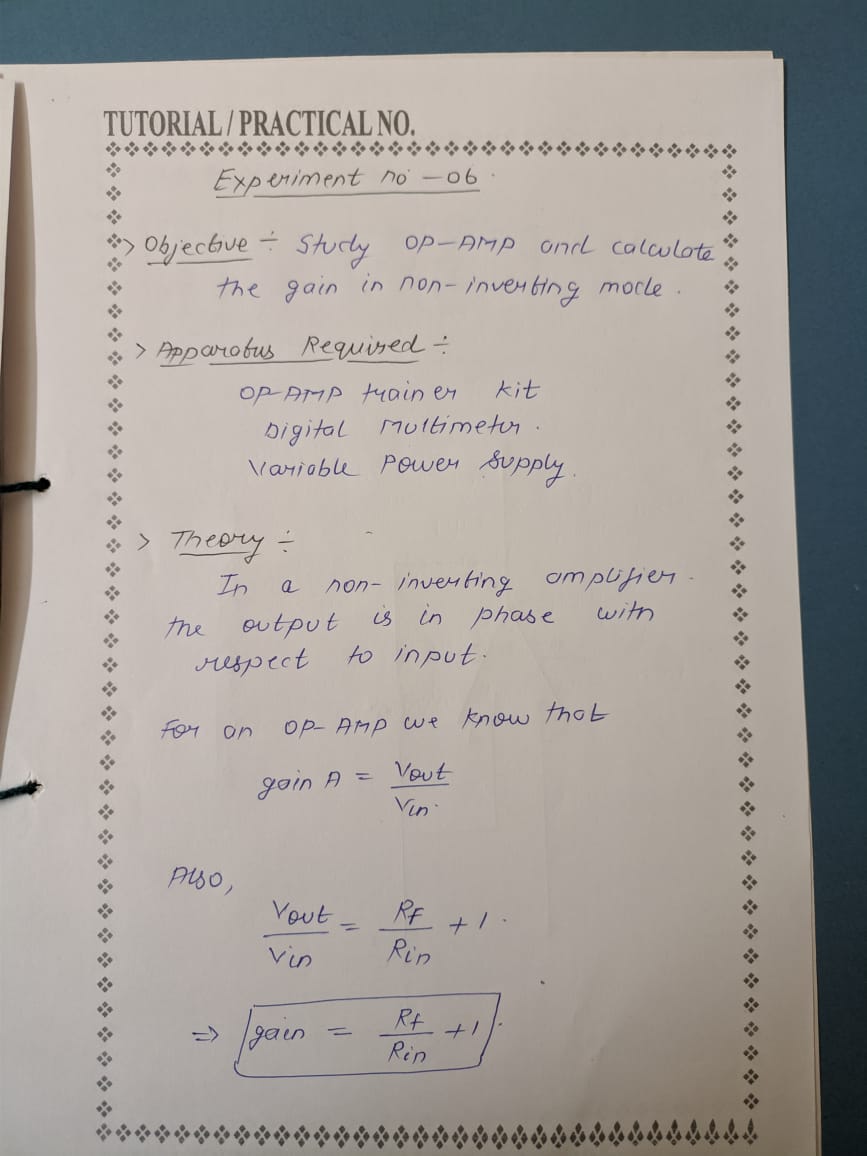 TUTORIAL / PRACTICAL NO.
Experiment no - 06
> Objective ÷ Study OP-AMP and calculate
the gain in non-inverting mode.
> Apparatus Required ÷
OP-AMP trainer kit
Digital Multimeter.
Variable Power Supply.
> Theory ÷
In a non-inverting amplifier.
the output is in phase with
respect to input.
For an OP-AMP we know that
gain A = Vout / Vin.
Also,
Vout / Vin = RF / Rin + 1.
⇒ gain = Rf / Rin + 1.